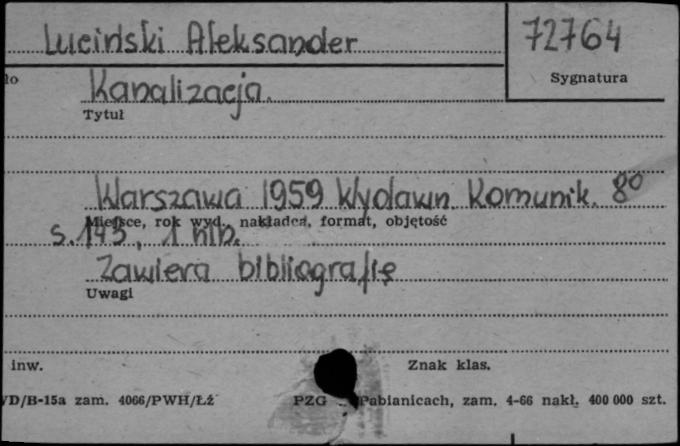 Luciński Aleksander
72764
Sygnatura
ło
Kanalizacja.
Tytuł
Warszawa 1959 Wydawn Komunik. 8º
Miejsce, rok wyd., nakładca, format, objętość
s. 143, 1 nlb.
Zawiera bibliografię
Uwagi
inw.
Znak klas.
/D/B-15a zam. 4066/PWH/Łź
PZG Pabianicach, zam. 4-66 nakł. 400 000 szt.